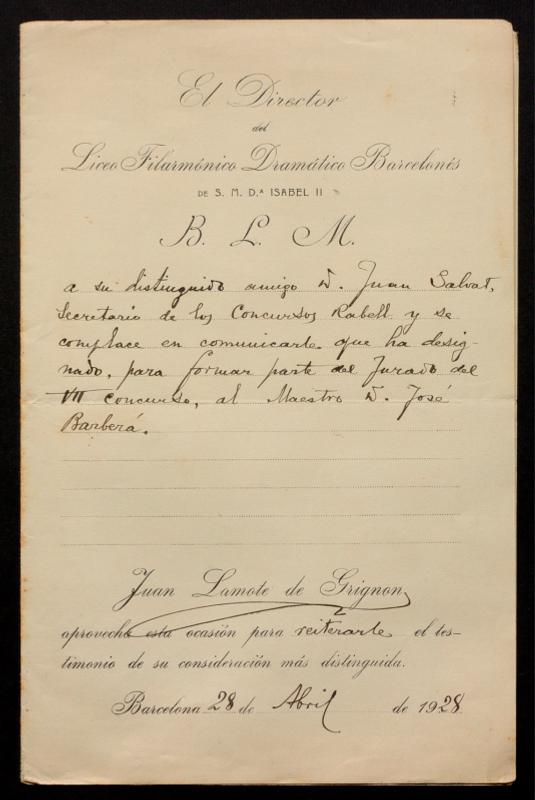 El Director
del
Liceo Filarmónico Dramático Barcelonés
DE S. M. D.ª ISABEL II
B. L. M.
a su distinguido amigo D. Juan Salvat,
Secretario de los Concursos Rabell y se
complace en comunicarle que ha desig-
nado, para formar parte del Jurado del
VII concurso, al Maestro D. José
Barberá.
Juan Lamote de Grignon,
aprovecha esta ocasión para reiterarle el tes-
timonio de su consideración más distinguida.
Barcelona 28 de Abril de 1928